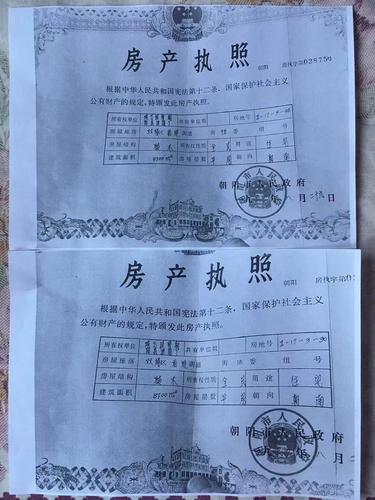 房产执照
朝阳 房执字第038750
根据中华人民共和国宪法第十二条,国家保护社会主义
公有财产的规定,特颁发此房产执照。
所有权单位 共有单位数 房地号 2-17-9-30
房屋座落 双塔区 街道 街 组 号
房屋结构 砖木 所有权性质 全民 用途 住宅
建筑面积 8700m² 房屋层数 平房 朝向 朝南
朝阳市人民政府
月 日
房产执照
朝阳 房执字第0
根据中华人民共和国宪法第十二条,国家保护社会主义
公有财产的规定,特颁发此房产执照。
所有权单位 共有单位数 房地号 2-17-9-30
房屋座落 双塔区 街道 街 委 组 号
房屋结构 砖木 所有权性质 全民 用途 住宅
建筑面积 8700m² 房屋层数 平房 朝向 朝南
朝阳市人民政府